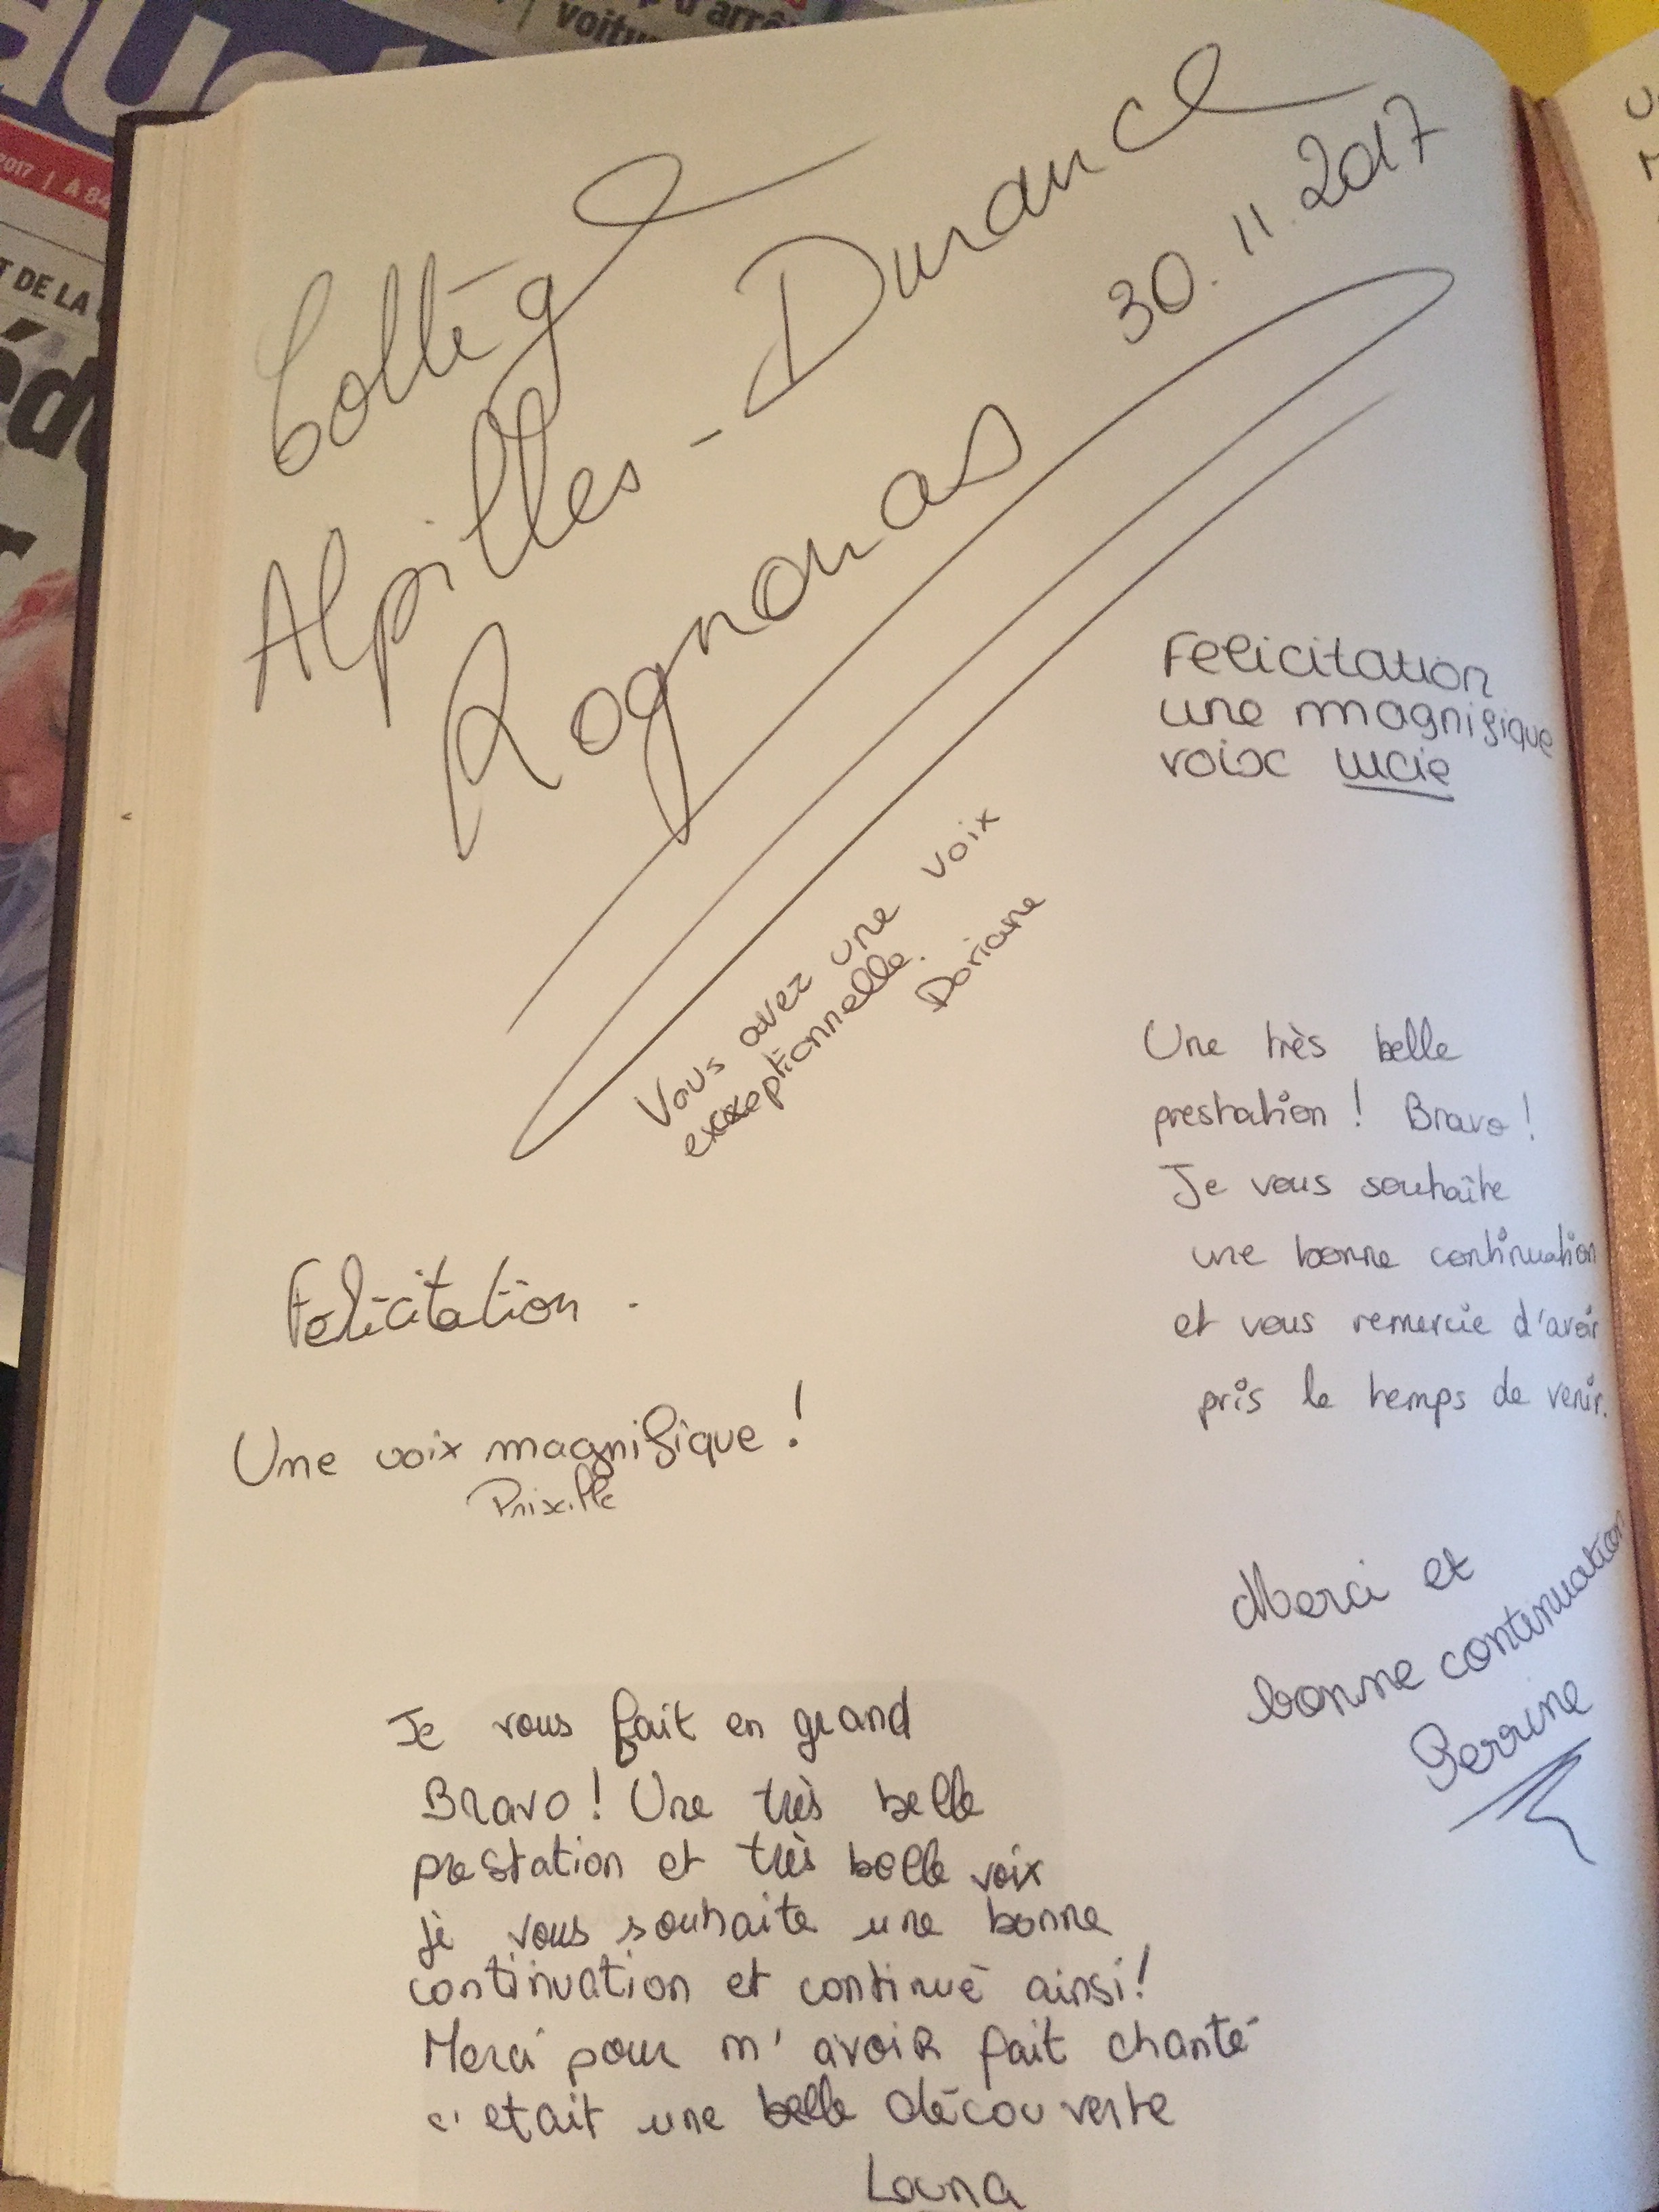 voitu
d'arrê
2017 | A 84
T DE LA
éd
Collège
Alpilles - Durance
Rognonas
30.11.2017
Felicitation
une magnifique
voix Lucie
Vous avez une voix
exceptionnelle.
Doriane
Une très belle
prestation ! Bravo !
Je vous souhaîte
une bonne continuation
et vous remercie d'avoir
pris le temps de venir.
Felicitation .
Une voix magnifique !
Merci et
bonne continuation
Perrine
Je vous fait en grand
Bravo ! Une très belle
prestation et très belle voix
je vous souhaite une bonne
continuation et continué ainsi !
Merci pour m'avoir fait chanté
c'etait une belle découverte
Louna